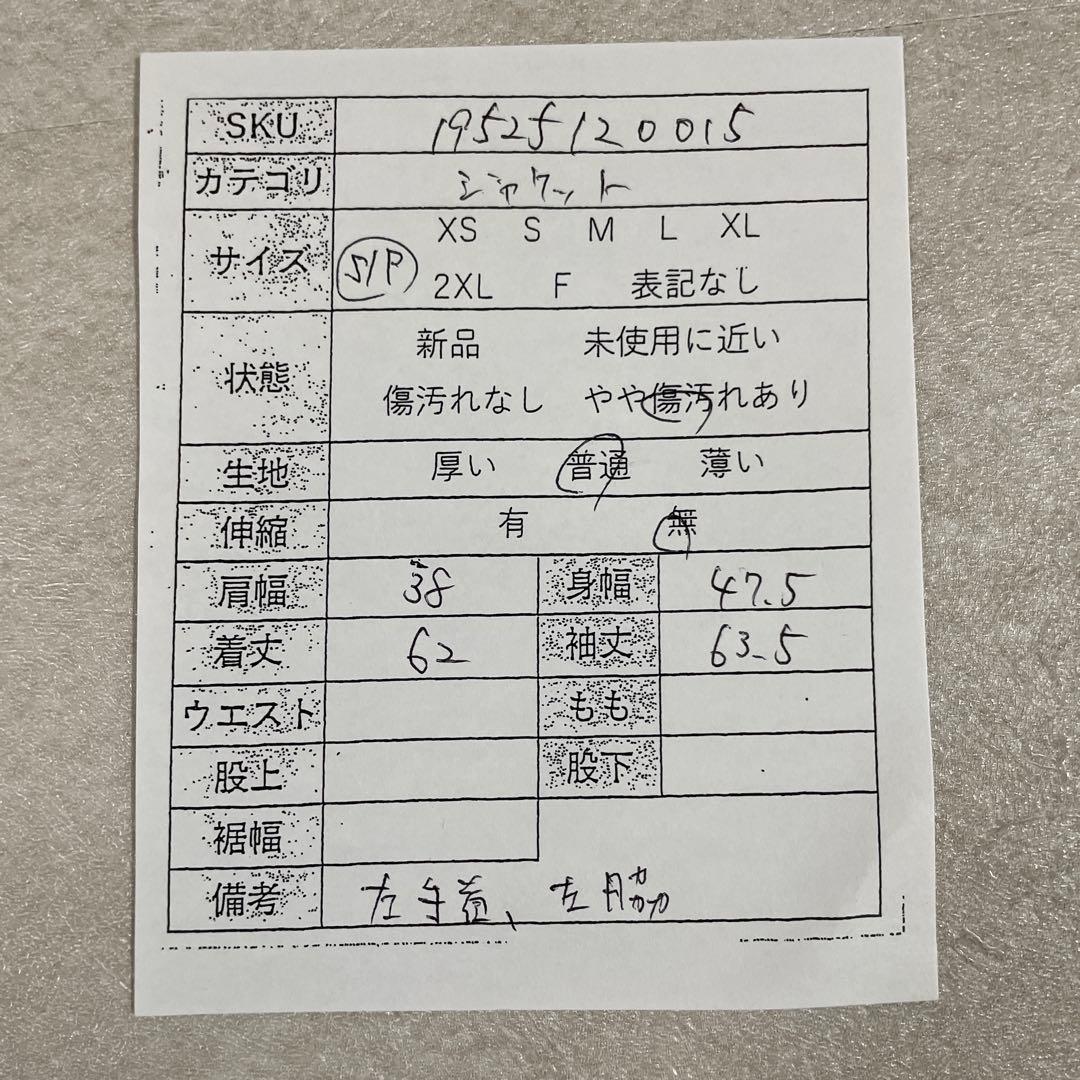 SKU 19525120015
カテゴリ ジャケット
サイズ XS S M L XL
S/P 2XL F 表記なし
状態 新品 未使用に近い
傷汚れなし やや傷汚れあり
生地 厚い 普通 薄い
伸縮 有 無
肩幅 38 身幅 47.5
着丈 62 袖丈 63.5
ウエスト もも
股上 股下
裾幅
備考 左手首、左脇